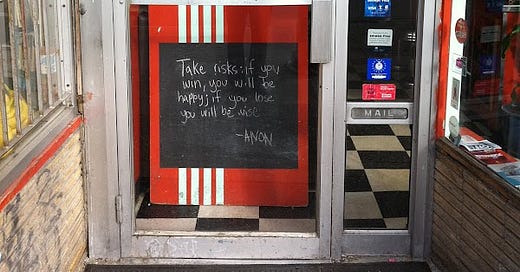 Take risks: if you
win, you will be
happy; if you lose
you will be wise
-ANON
MAIL